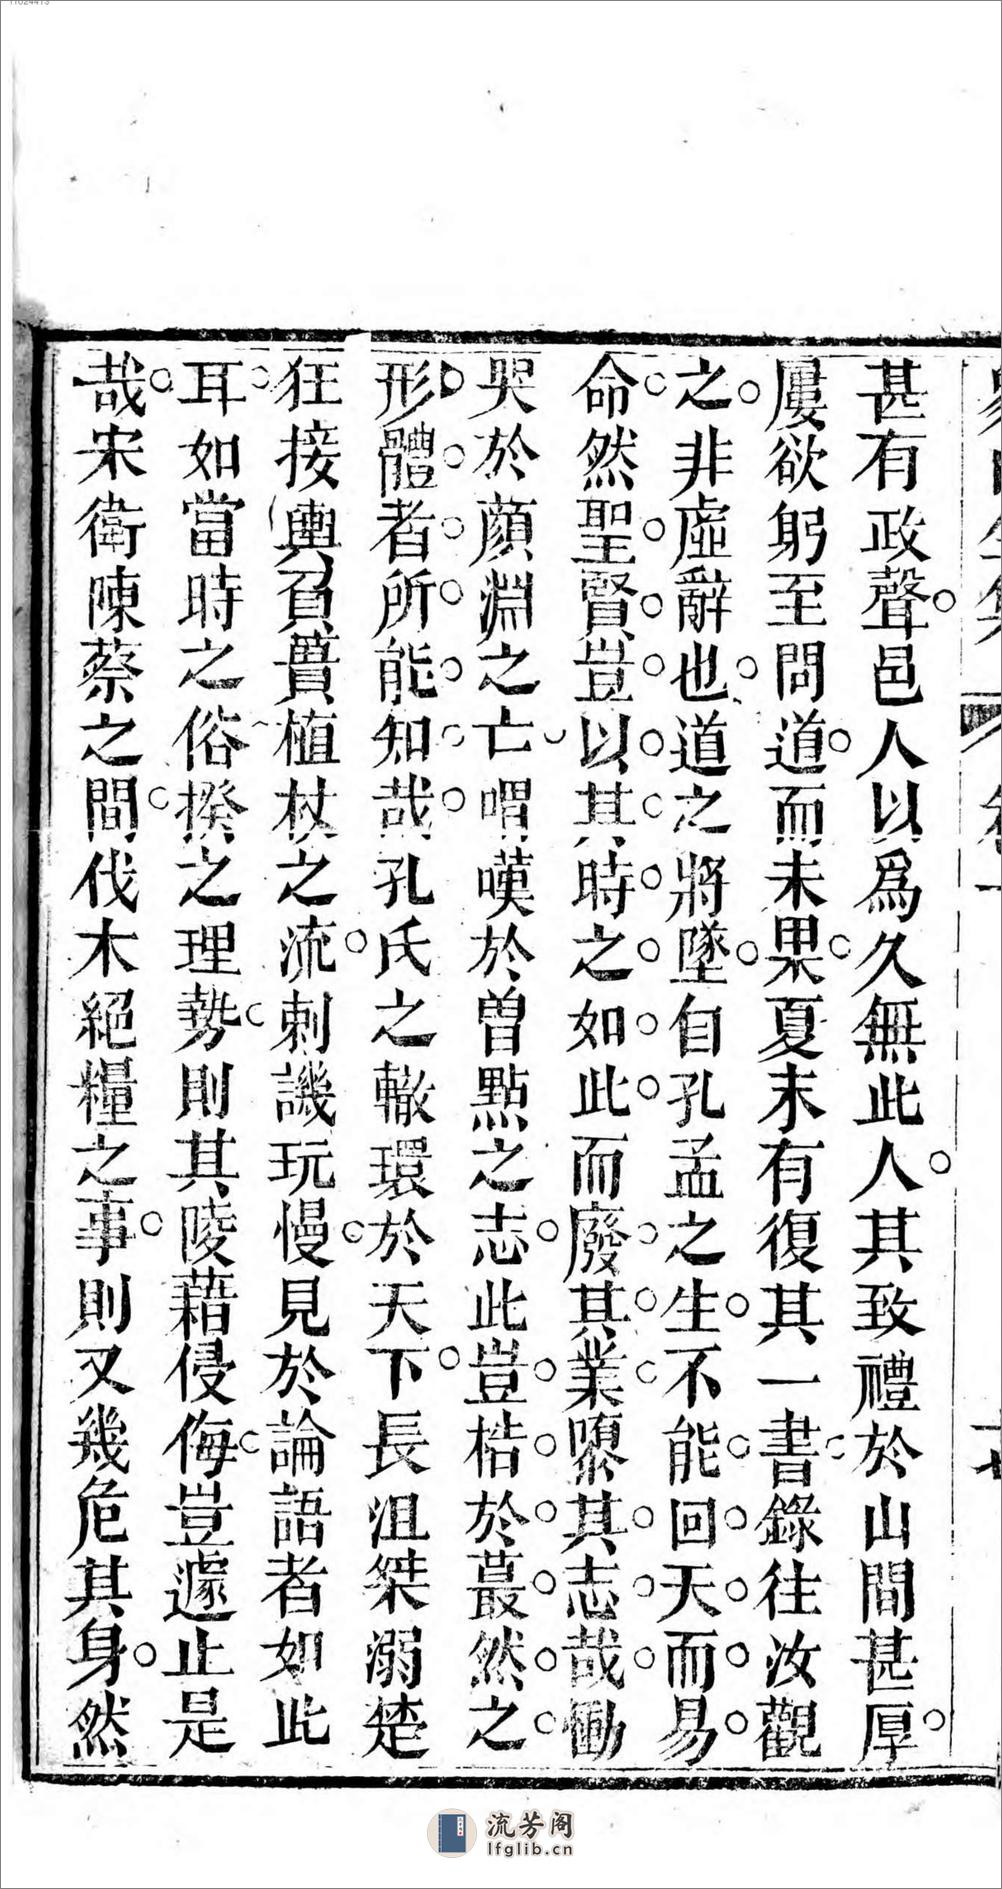 甚有政聲邑人以爲久無此人其致禮於山間甚厚
屢欲躬至問道而未果夏末有復其一書錄往汝觀
之非虛辭也道之將墜自孔孟之生不能回天而易
命然聖賢豈以其時之如此而廢其業隳其志哉慟
哭於顏淵之亡喟嘆於曾點之志此豈梏於蕞然之
形體者所能知哉孔氏之轍環於天下長沮桀溺楚
狂接輿負蕢植杖之流刺譏玩慢見於論語者如此
耳如當時之俗揆之理勢則其陵藉侵侮豈遽止是
哉宋衛陳蔡之間伐木絕糧之事則又幾危其身然
流芳阁
lfglib.cn